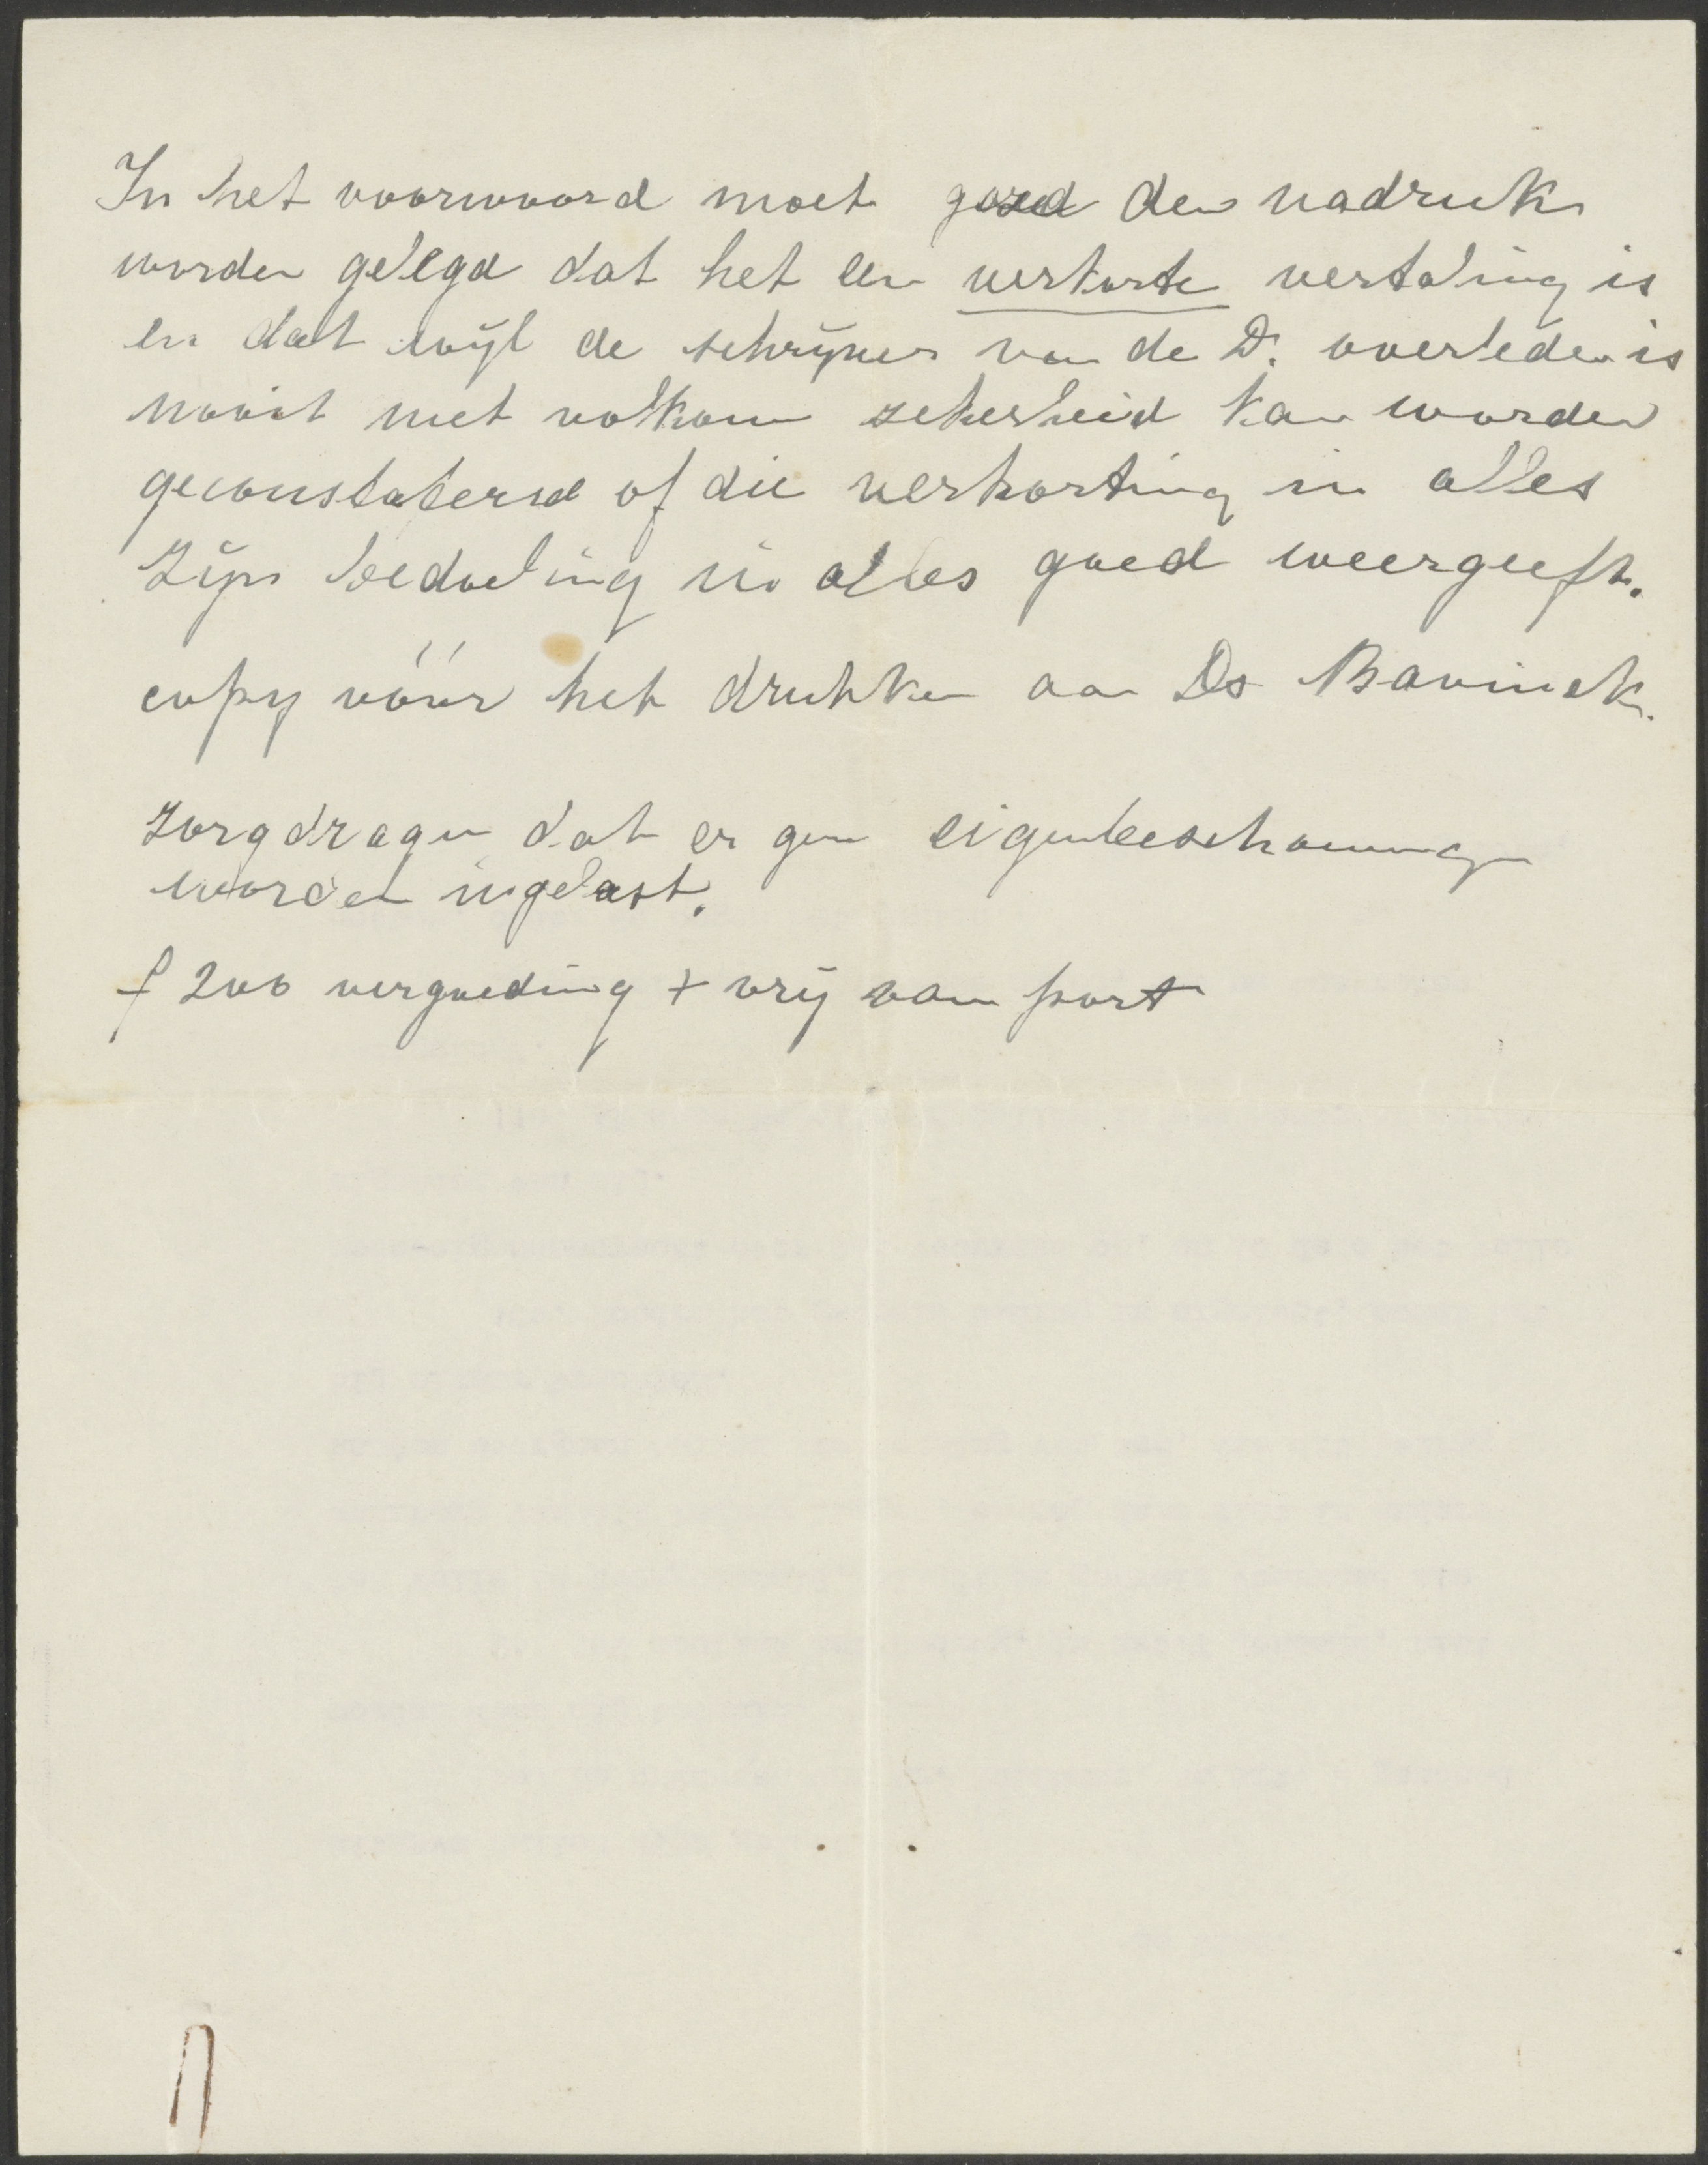 In het voorwoord moet goed den nadruk
worden gelegd dat het een verkorte vertaling is
en dat wijl de schrijver van de D. overleden is
nooit met volkom zekerheid kan worden
geconstateerd of die verkorting in alles
zijn bedoeling in alles goed weergeeft.
copy vóór het drukken aan Ds Bavinck.
zorgdragen dat er geen eigenbeschouwingen
worden ingelast.
f 200 vergoeding + vrij van port